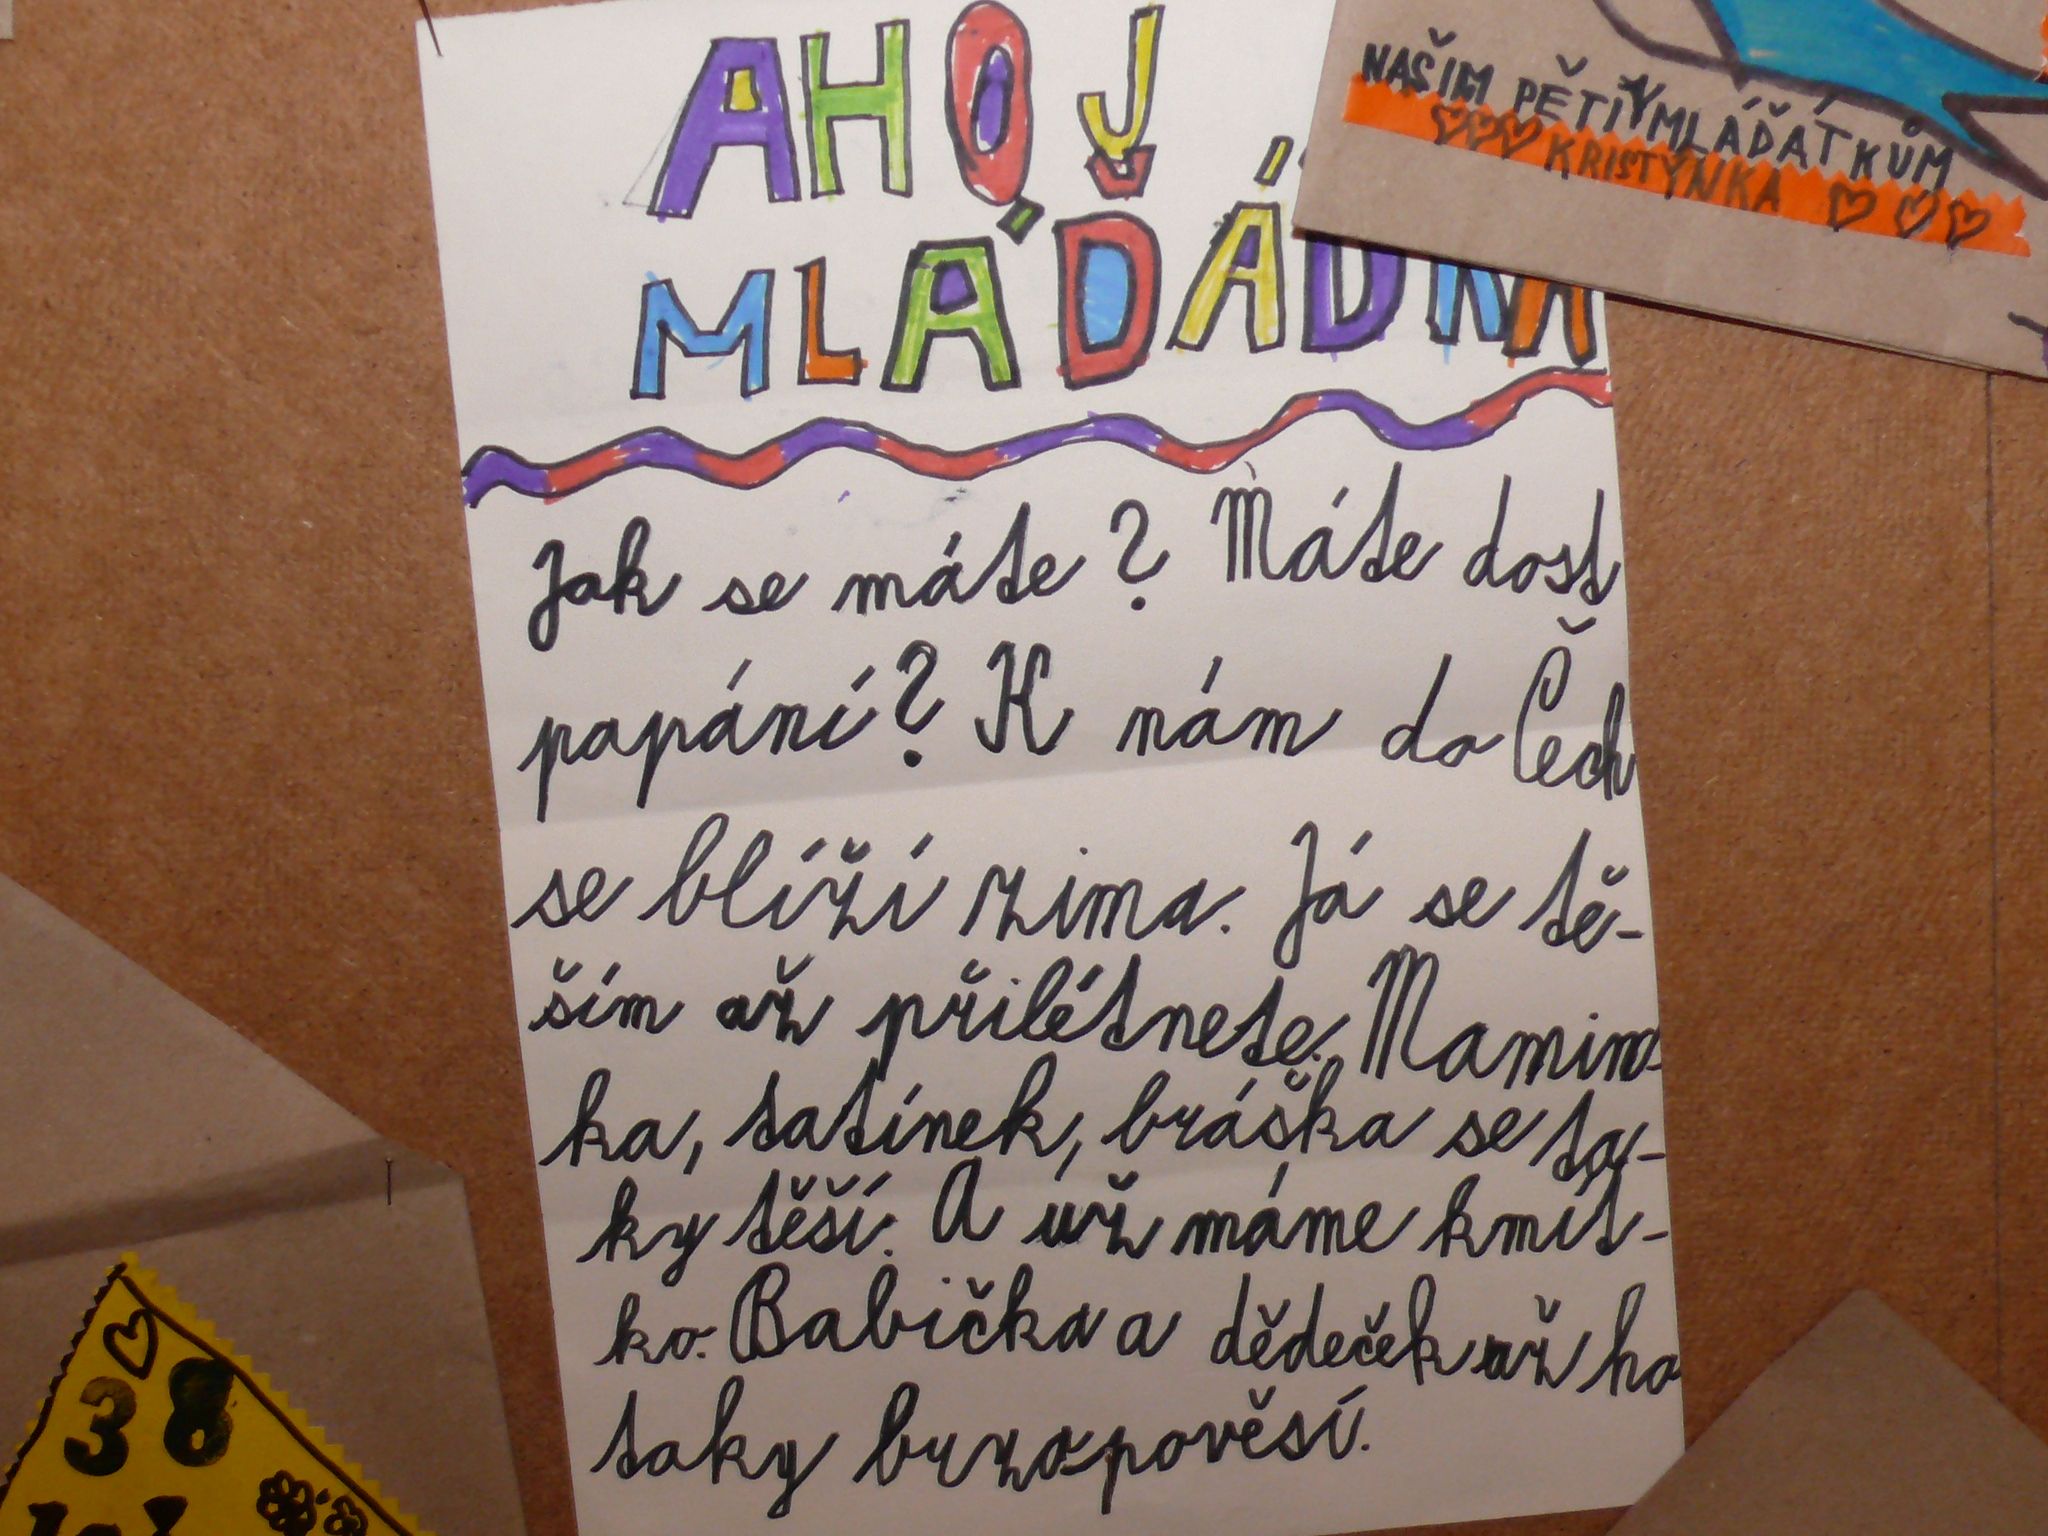 AHOJ
MLAĎÁDKA
NAŠIM PĚTI MLÁĎÁTKŮM
KRISTÝNKA
Jak se máte? Máte dost
papání? K nám do Čech
se blíží zima. Já se tě-
ším až přilétnete. Mamin-
ka, tatínek, bráška se ta-
ky těší. A už máme kmít-
ko. Babička a dědeček až ho
taky brzo pověsí.
38